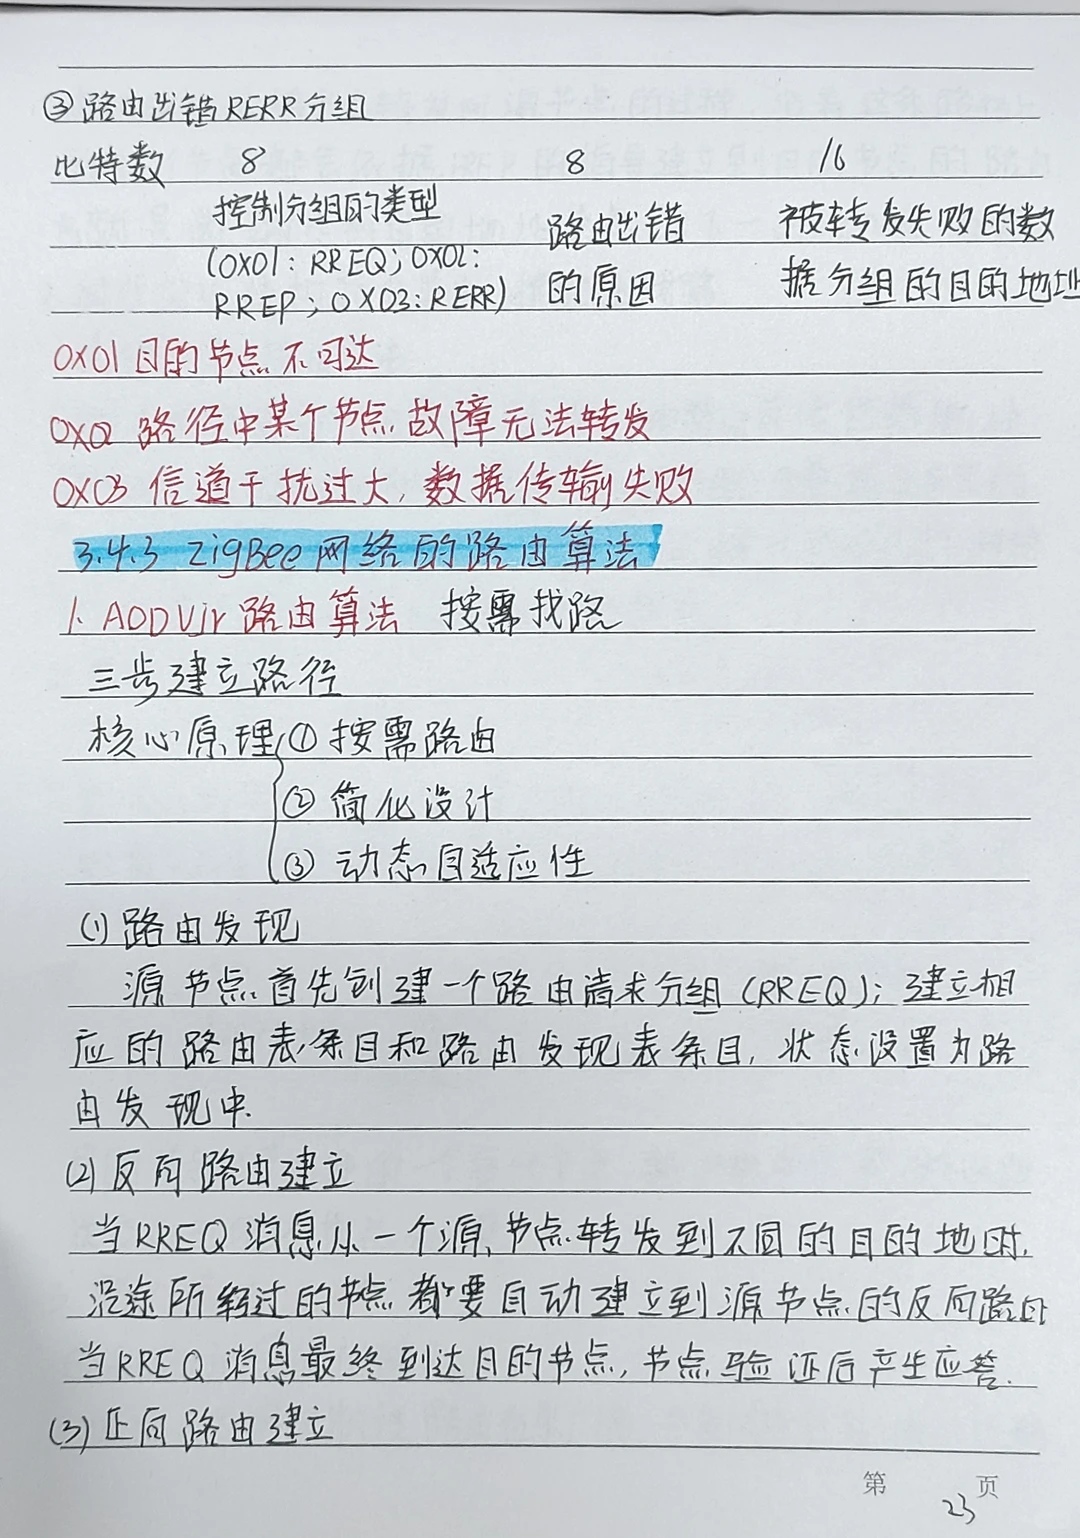 ③路由出错RERR分组
比特数 8 8 16
控制分组的类型 路由出错 被转发失败的数
(0X01：RREQ；0X02： 的原因 据分组的目的地址
RREP；0X03：RERR)
0X01 目的节点不可达
0X02 路径中某个节点故障无法转发
0X03 信道干扰过大，数据传输失败
3.4.3 ZigBee网络的路由算法
1. AODVjr路由算法 按需找路
三步建立路径
核心原理 ① 按需路由
② 简化设计
③ 动态自适应性
(1) 路由发现
源节点首先创建一个路由请求分组(RREQ)；建立相
应的路由表条目和路由发现表条目，状态设置为路
由发现中.
(2) 反向路由建立
当RREQ消息从一个源节点转发到不同的目的地时，
沿途所经过的节点都要自动建立到源节点的反向路由
当RREQ消息最终到达目的节点，节点验证后产生应答.
(3) 正向路由建立
第 23 页